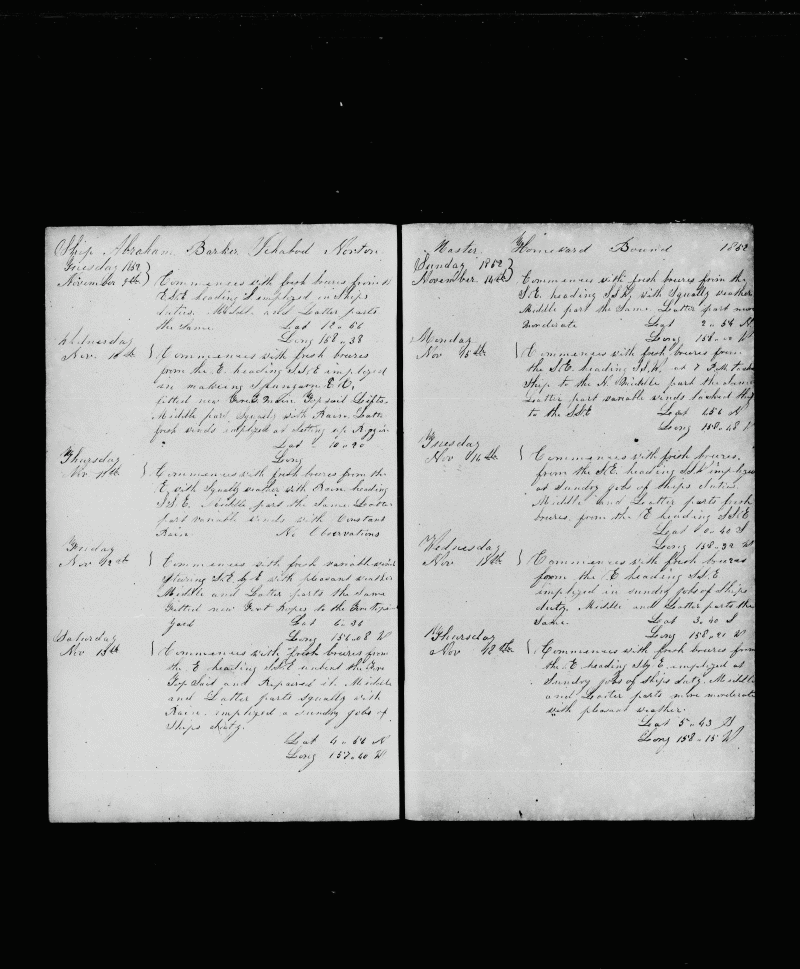 Ship Abraham Barker Ichabod Norton
Tuesday 1852
November 9th Commences with fresh breezes from
E.S.E. heading S employed in ships
duties. Middle and Latter parts
the same. Lat 12 " 56
Long 158 " 38
Wednesday
Nov. 10th Commences with fresh breezes
from the E. heading S.S.E employed
in making Spunyarn &C,
fitted new Topsail Lifts.
Middle part Squaly with Rain Latter
fresh winds employed at setting up Riggin
Lat " 10 " 20
Long
Thursday
Nov 11th Commences with fresh breezes from the
E, with Squaly weather with Rain heading
S.S.E. Middle part the same Latter
part variable winds with Constant
Rain. No Observations
Friday
Nov 12th Commences with fresh variable winds
S.E. & E with pleasant weather
Middle and Latter parts the Same
fitted new Foot Ropes to the Topsail
Yard Lat 6 " 36
Long 156 " 08 W
Saturday
Nov 13th Commences with fresh breezes from
the E heading S.S.E unbent the
Top Sail and Repaired it. Middle
and Latter parts squaly with
Rain. employed a sundry jobs of
Ships duty.
Lat 4 " 56 N
Long 157 " 40 W
Master Homeward Bound 1852
Sunday 1852
November 14th Commences with fresh breezes from the
S.E. heading S.S.W, with Squaly weather
Middle part the Same. Latter part more
moderate Lat 2 " 58 N
Long 158 " W
Monday
Nov 15th Commences with fresh breezes from
the S.E. heading S.S.W. at 7 P.M. tacked
Ship to the N. Middle part the Same
Latter part variable winds tacked Ship
to the S.S.E Lat 1.56 N
Long 158 " 48 W
Tuesday
Nov 16th Commences with fresh breezes,
from the S.E. heading S.S.W employed
at Sundry jobs of Ships duties.
Middle and Latter parts fresh
breezes, from the E heading S.S.E
Lat 0 " 40 S
Long 158 " 32 W
Wednesday
Nov 18th Commences with fresh breezes
from the E heading S.S.E
employed in sundry jobs of Ships
duty. Middle and Latter parts the
Same. Lat 3 " 40 S
Long 158 " 21 W
Thursday
Nov 18th Commences with fresh breezes from
the E heading S.E. employed at
Sundry jobs of ships duty. Middle
and Latter parts more moderate
with pleasant weather.
Lat 5 " 43 S
Long 158 " 15 W